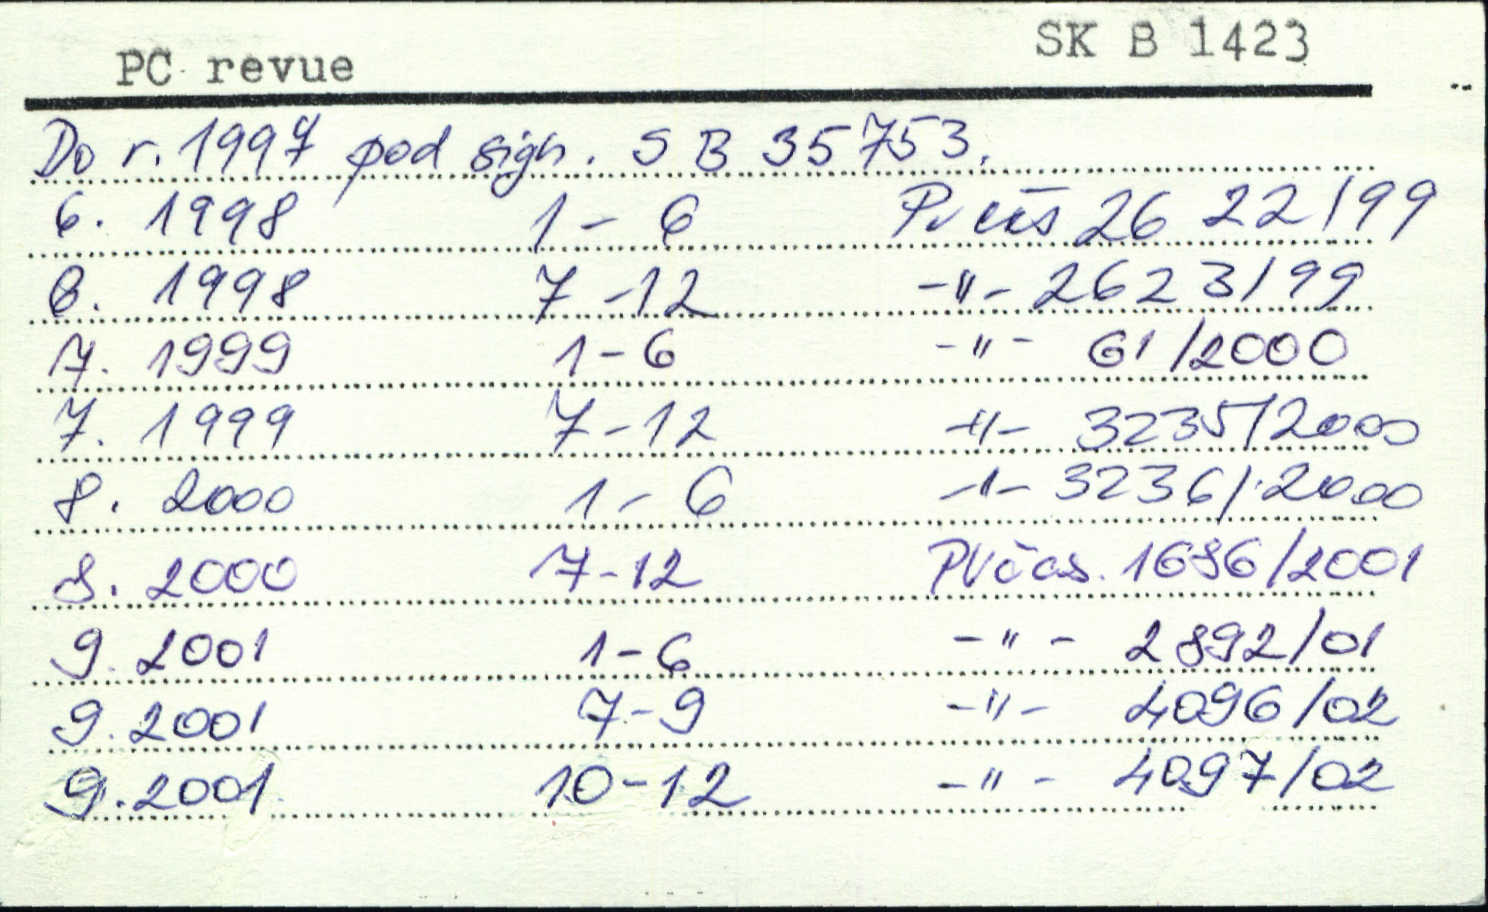 PC revue SK B 1423
Do r. 1997 pod sign. SB 35753.
6. 1998 1-6 PV čas 2622/99
6. 1998 7-12 -"- 2623/99
7. 1999 1-6 -"- 61/2000
7. 1999 7-12 -"- 3235/2000
8. 2000 1-6 -"- 3236/2000
8. 2000 7-12 PV čas. 1686/2001
9. 2001 1-6 -"- 2892/01
9. 2001 7-9 -"- 4096/02
9. 2001 10-12 -"- 4097/02